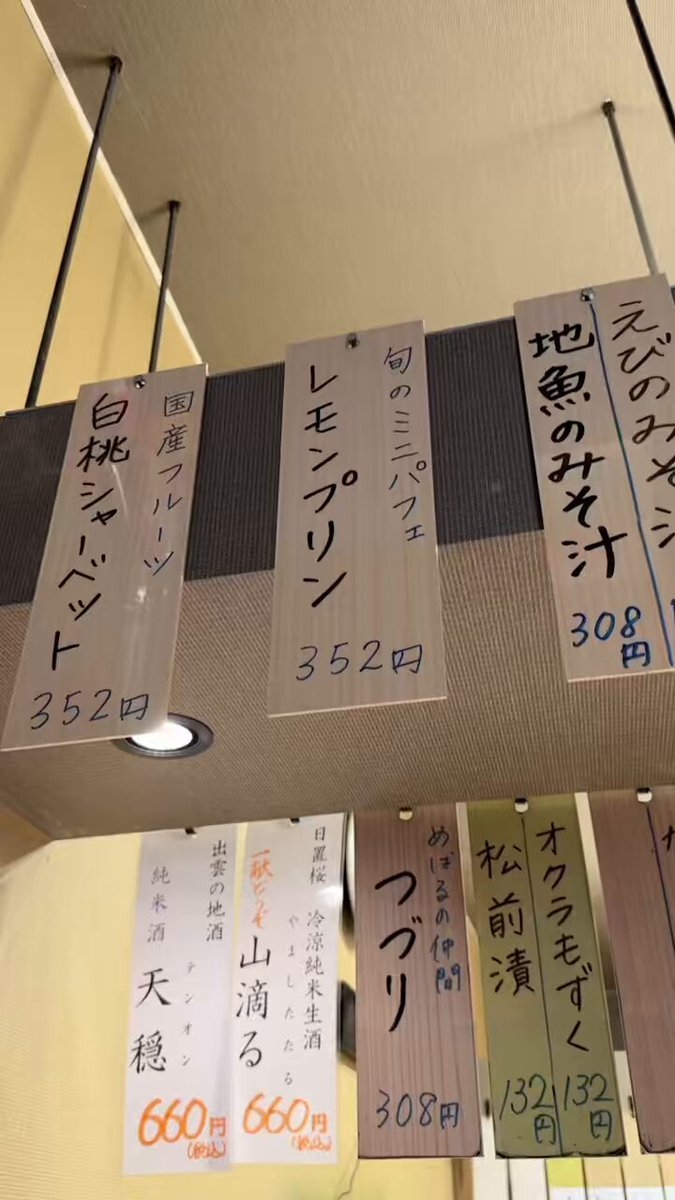 えびのみそ汁
地魚のみそ汁
308円
旬のミニパフェ
レモンプリン
352円
国産フルーツ
白桃シャーベット
352円
オクラもずく
132円
松前漬
132円
めばるの仲間
つづり
308円
日置桜 冷涼純米生酒
一献どうぞ
やましたたる
山滴る
660円
(税込)
出雲の地酒
純米酒
テンオン
天穏
660円
(税込)